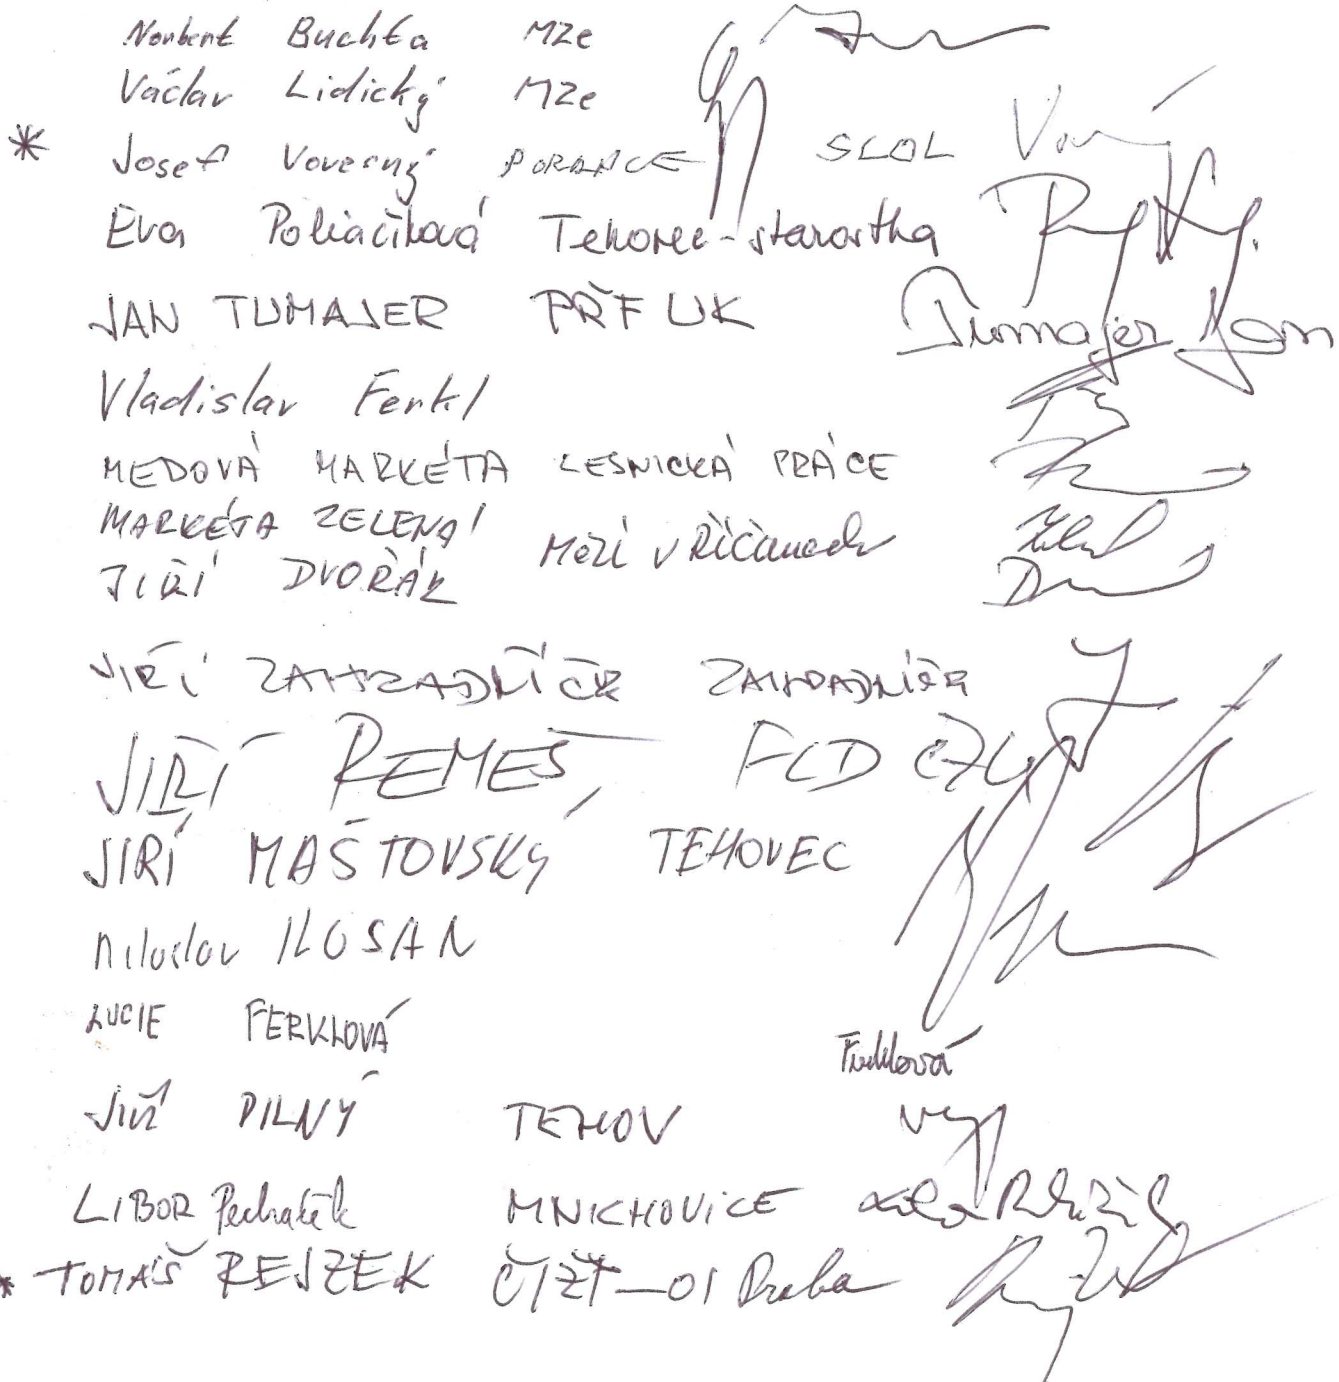 Norbert Buchta MZe
Václav Lidický MZe
* Josef Voverný PORADCE SLOL
Eva Poliačiková Tehovec-starostka
JAN TUMAJER PŘF UK Tumajer Jan
Vladislav Ferkl
MEDOVÁ MARKÉTA LESNICKÁ PRÁCE
MARKÉTA ZELENÁ
JIŘÍ DVOŘÁK MěÚ v Říčanech
JIŘÍ ZAHRADNÍČEK
JIŘÍ REMEŠ, FLD ČZU
JIŘÍ MAŠTOVSKÝ TEHOVEC
Miloslav
LUCIE FERKLOVÁ Ferklová
Jiří PILNÝ TEHOV
LIBOR Pecháček MNICHOVICE
* TOMÁŠ REJZEK ČIŽP-OI Praha